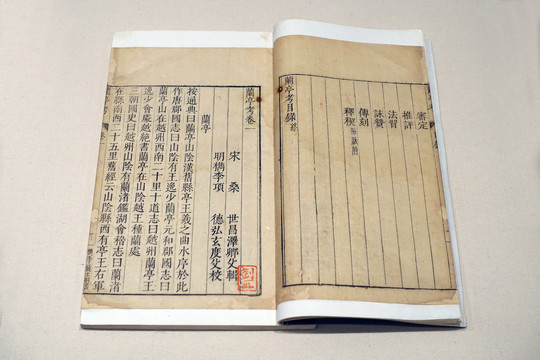 審定
推評
法習
詠贊
傳刻
釋禊
蘭亭考目錄終
蘭亭考卷一
宋 桑 世昌澤卿父輯
明檇李項 德弘玄度父校
蘭亭
按通典曰蘭亭山陰漢舊縣亭王羲之曲水序於此
作唐郡國志曰山陰有王逸少蘭亭元和郡國志曰
蘭亭山在越州西南二十里十道志曰越州蘭亭王
逸少會處越絕書蘭亭在山陰越王種蘭處
三朝國史曰越州山陰有蘭渚鑑湖會稽志曰蘭渚
在縣南西二十五里舊經云山陰縣西有亭王右軍